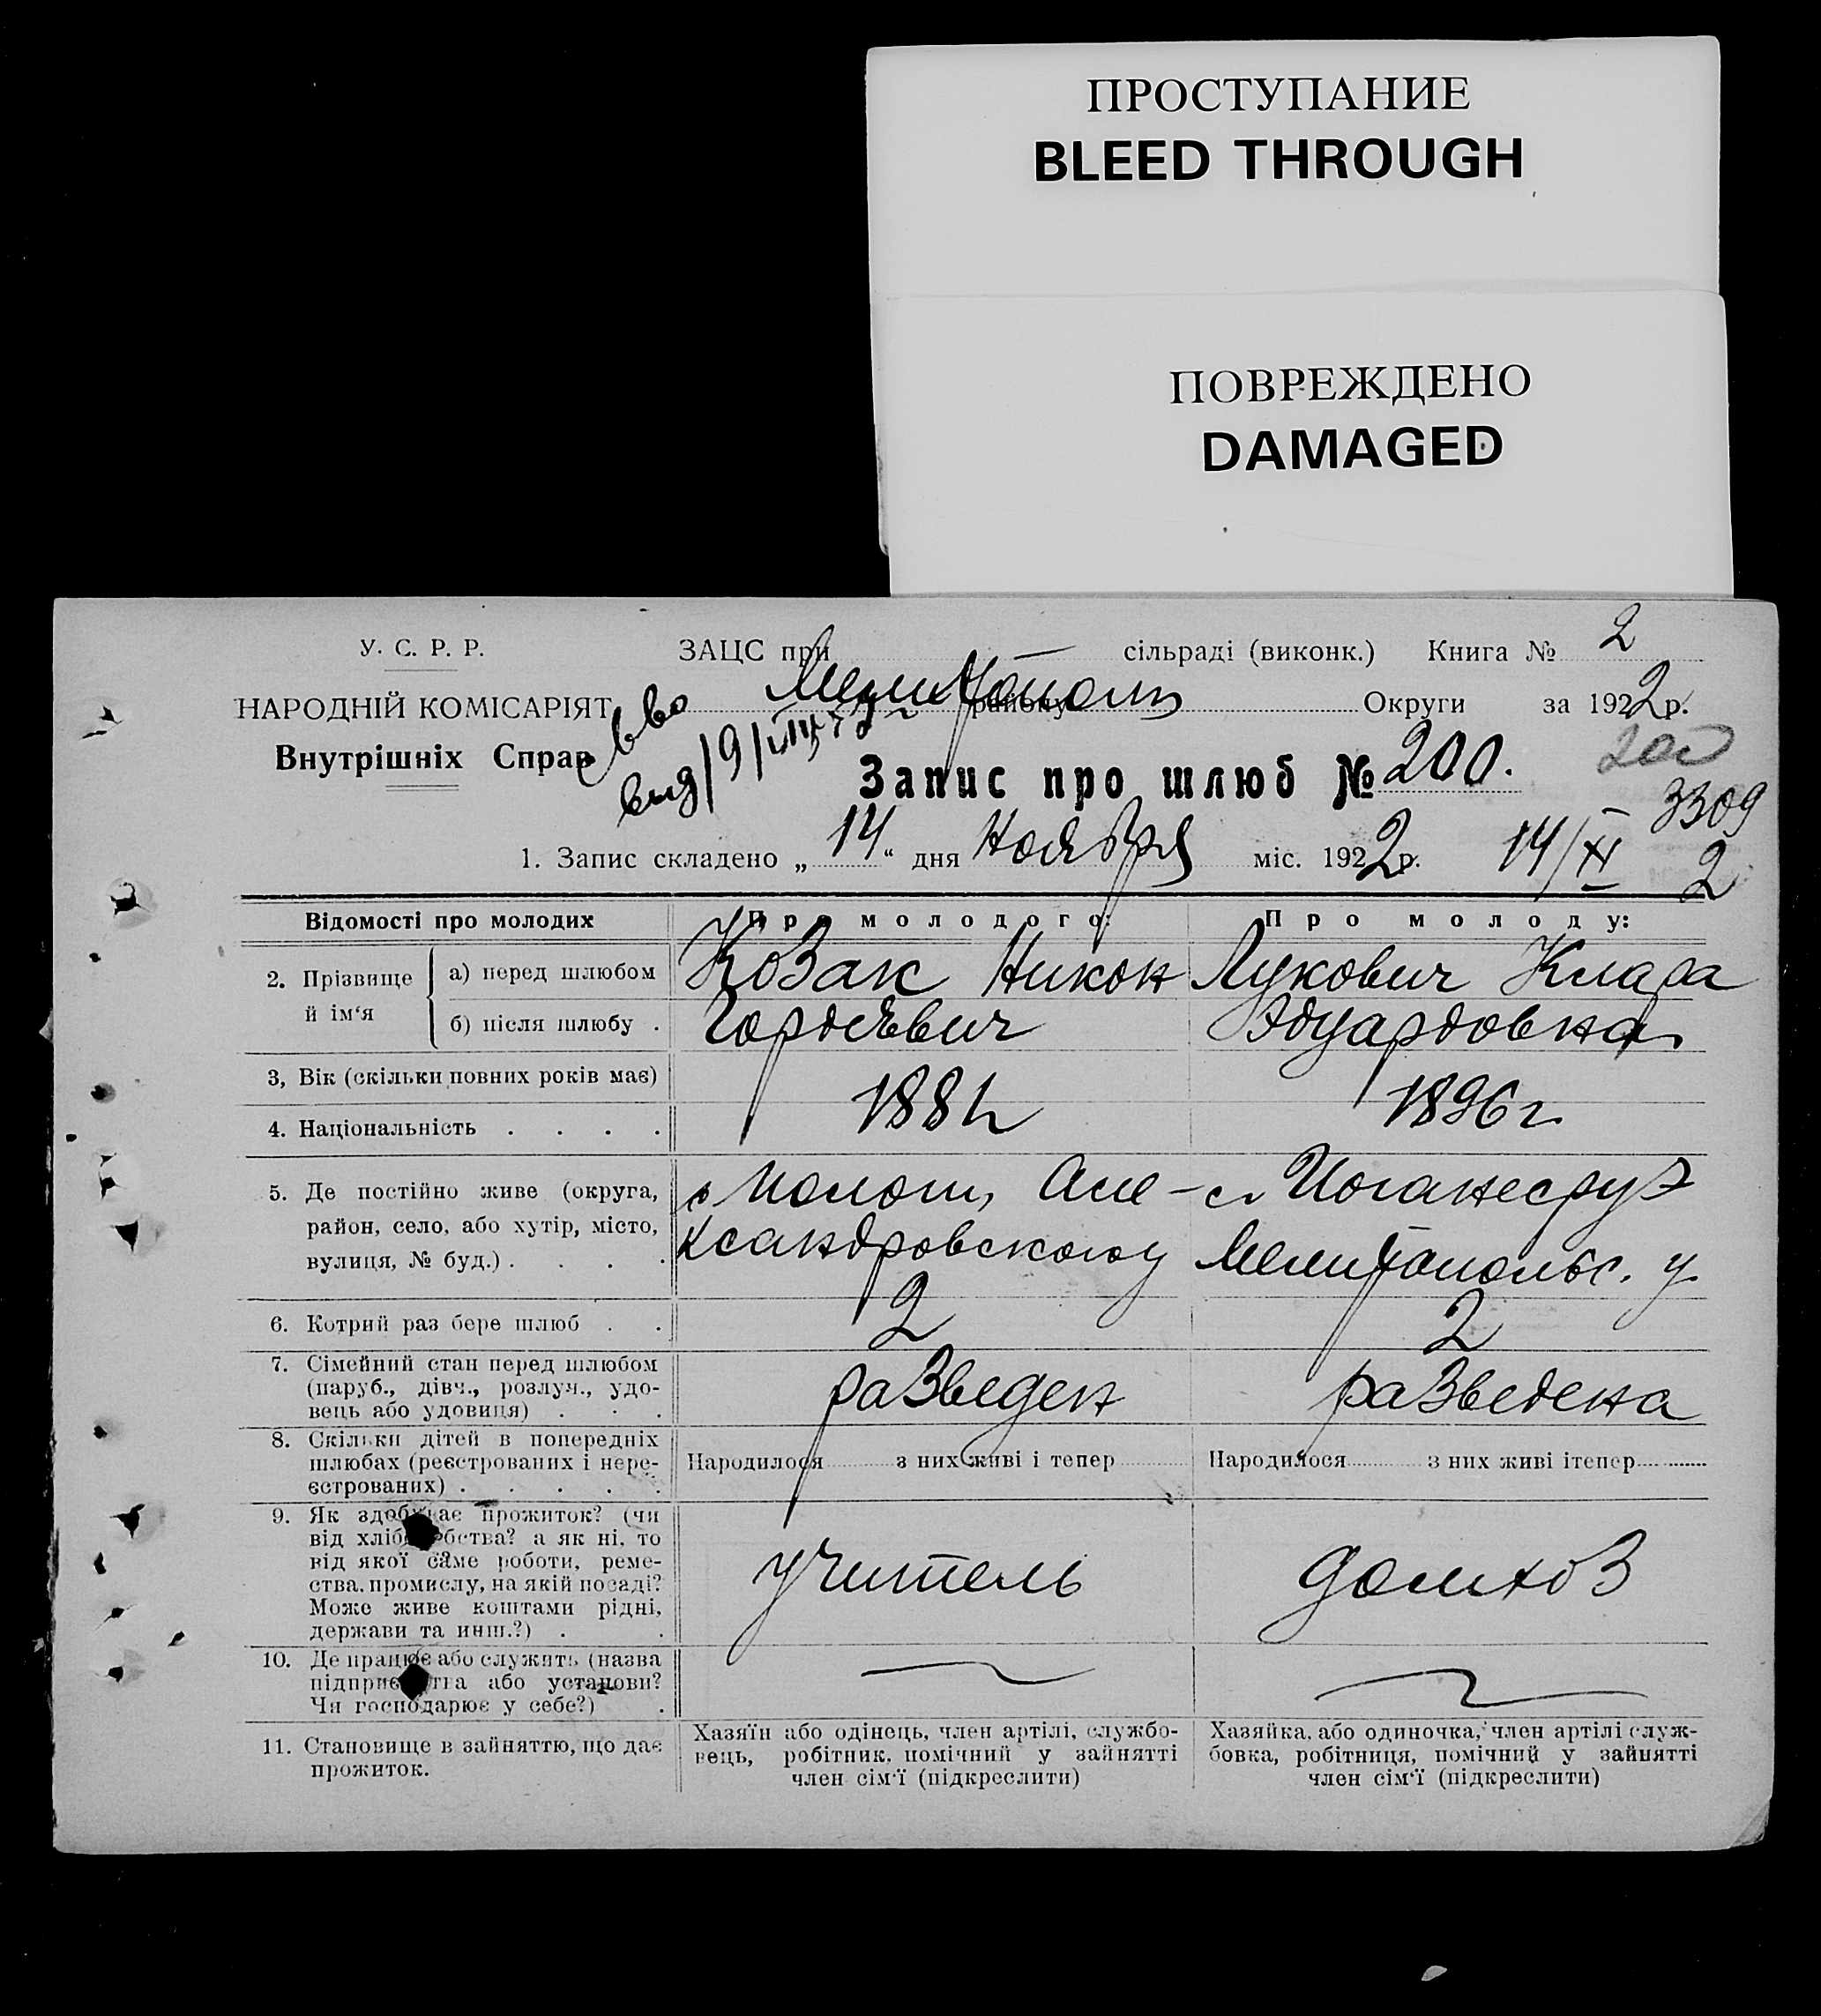 ПРОСТУПАНИЕ
BLEED THROUGH
ПОВРЕЖДЕНО
DAMAGED
У. С. Р. Р. ЗАЦС при сільраді (виконк.) Книга № 2
НАРОДНІЙ КОМІСАРІЯТ Мелитополь району Округи за 1922 р.
Внутрішніх Справ
Запис про шлюб № 200. 200
3309
1. Запис складено „ 14 “ дня Ноября міс. 1922 р. 14/XI 2
Відомості про молодих Про молодого: Про молоду:
2. Прізвище й ім‘я
а) перед шлюбом Козак Никон Лукович Клара
б) після шлюбу . Гордеевич Эдуардовна
3, Вік (скільки повних років має)
4. Національність . . . . 1896 г
5. Де постійно живе (округа, Але- с. Иоганесруэ
район, село, або хутір, місто,
вулиця, № буд.) . . . . ксандровского у Мелитопольс. у.
6. Котрий раз бере шлюб . . 2 2
7. Сімейний стан перед шлюбом
(паруб., дівч., розлуч., удо-
вець або удовиця) . . . разведен разведена
8. Скільки дітей в попередніх
шлюбах (реєстрованих і нере-
єстрованих) . . . . . Народилося з них живі і тепер Народилося з них живі ітепер
9. Як здобуває прожиток? (чи
від хліборобства? а як ні, то
від якої саме роботи, реме-
ства, промислу, на якій посаді?
Може живе коштами рідні,
держави та инш.?) . . учитель домхоз
10. Де працює або служить (назва
підприємства або установи?
Чи господарює у себе?) .
11. Становище в зайняттю, що дає
прожиток.
Хазяїн або одінець, член артілі, службо-
вець, робітник, помічний у зайнятті
член сім‘ї (підкреслити)
Хазяйка, або одиночка, член артілі служ-
бовка, робітниця, помічний у зайнятті
член сім‘ї (підкреслити)